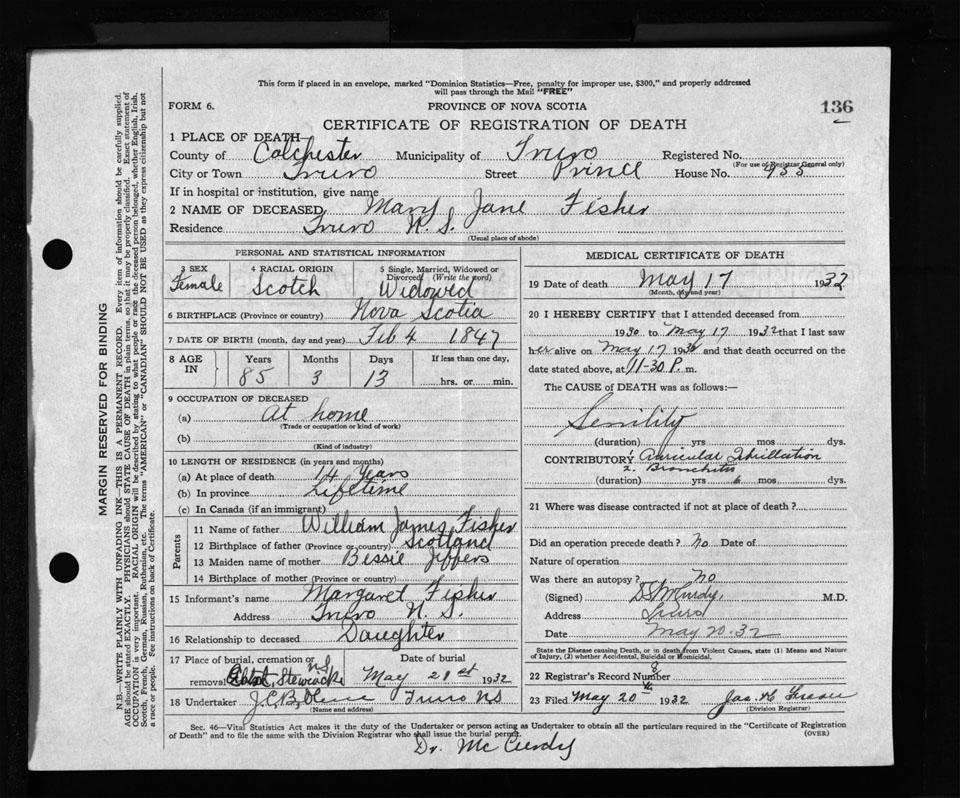 This form if placed in an envelope, marked "Dominion Statistics—Free, penalty for improper use, $300," and properly addressed
will pass through the Mail "FREE"
FORM 6.
PROVINCE OF NOVA SCOTIA
136
CERTIFICATE OF REGISTRATION OF DEATH
1 PLACE OF DEATH—
County of Colchester Municipality of Truro Registered No.
(For use of Registrar General only)
City or Town Truro Street Prince House No. 955
If in hospital or institution, give name
2 NAME OF DECEASED Mary Jane Fisher
Residence Truro N. S.
(Usual place of abode)
PERSONAL AND STATISTICAL INFORMATION
3 SEX 4 RACIAL ORIGIN 5 Single, Married, Widowed or Divorced (Write the word)
Female Scotch Widowed
6 BIRTHPLACE (Province or country) Nova Scotia
7 DATE OF BIRTH (month, day and year) Feb 4 1847
8 AGE IN Years Months Days If less than one day,
85 3 13 hrs. or min.
9 OCCUPATION OF DECEASED
(a) At home
(Trade or occupation or kind of work)
(b)
(Kind of industry)
10 LENGTH OF RESIDENCE (in years and months)
(a) At place of death 14 Years
(b) In province Lifetime
(c) In Canada (if an immigrant)
Parents
11 Name of father William James Fisher
12 Birthplace of father (Province or country) Scotland
13 Maiden name of mother Bessie Jeffers
14 Birthplace of mother (Province or country)
15 Informant's name Margaret Fisher
Address Truro N. S.
16 Relationship to deceased Daughter
17 Place of burial, cremation or removal Stewiacke N S
Date of burial
May 21st 1932
18 Undertaker Truro NS
(Name and address)
MEDICAL CERTIFICATE OF DEATH
19 Date of death May 17 1932
(Month, day and year)
20 I HEREBY CERTIFY that I attended deceased from
1930 to May 17 1932 that I last saw
her alive on May 17 and that death occurred on the
date stated above, at 11-30 P. m.
The CAUSE of DEATH was as follows:—
Senility
(duration) yrs mos dys.
CONTRIBUTORY Auricular Fibrillation
2. Bronchitis
(duration) yrs 6 mos dys.
21 Where was disease contracted if not at place of death?
Did an operation precede death? No Date of
Nature of operation
Was there an autopsy? No
(Signed) M.D.
Address Truro
Date May 20-32
State the Disease causing Death, or in death from Violent Causes, state (1) Means and Nature of Injury, (2) whether Accidental, Suicidal or Homicidal.
22 Registrar's Record Number
23 Filed May 20 1932 Jas. H. Fraser
(Division Registrar)
Sec. 46—Vital Statistics Act makes it the duty of the Undertaker or person acting as Undertaker to obtain all the particulars required in the "Certificate of Registration
of Death" and to file the same with the Division Registrar who shall issue the burial permit.
(OVER)
Dr. McCurdy
MARGIN RESERVED FOR BINDING
N.B.—WRITE PLAINLY WITH UNFADING INK—THIS IS A PERMANENT RECORD. Every item of information should be carefully supplied.
AGE should be stated EXACTLY. PHYSICIANS should STATE CAUSE OF DEATH in plain terms, so that it may be properly classified. Exact statement of
OCCUPATION is very important. RACIAL ORIGIN will be described by stating to what people or race the deceased person belonged, whether English, Irish,
Scotch, French, German, Russian, Ruthenian, etc. The terms "AMERICAN" or "CANADIAN" SHOULD NOT BE USED as they express citizenship but not
a race or people. See instructions on back of Certificate.